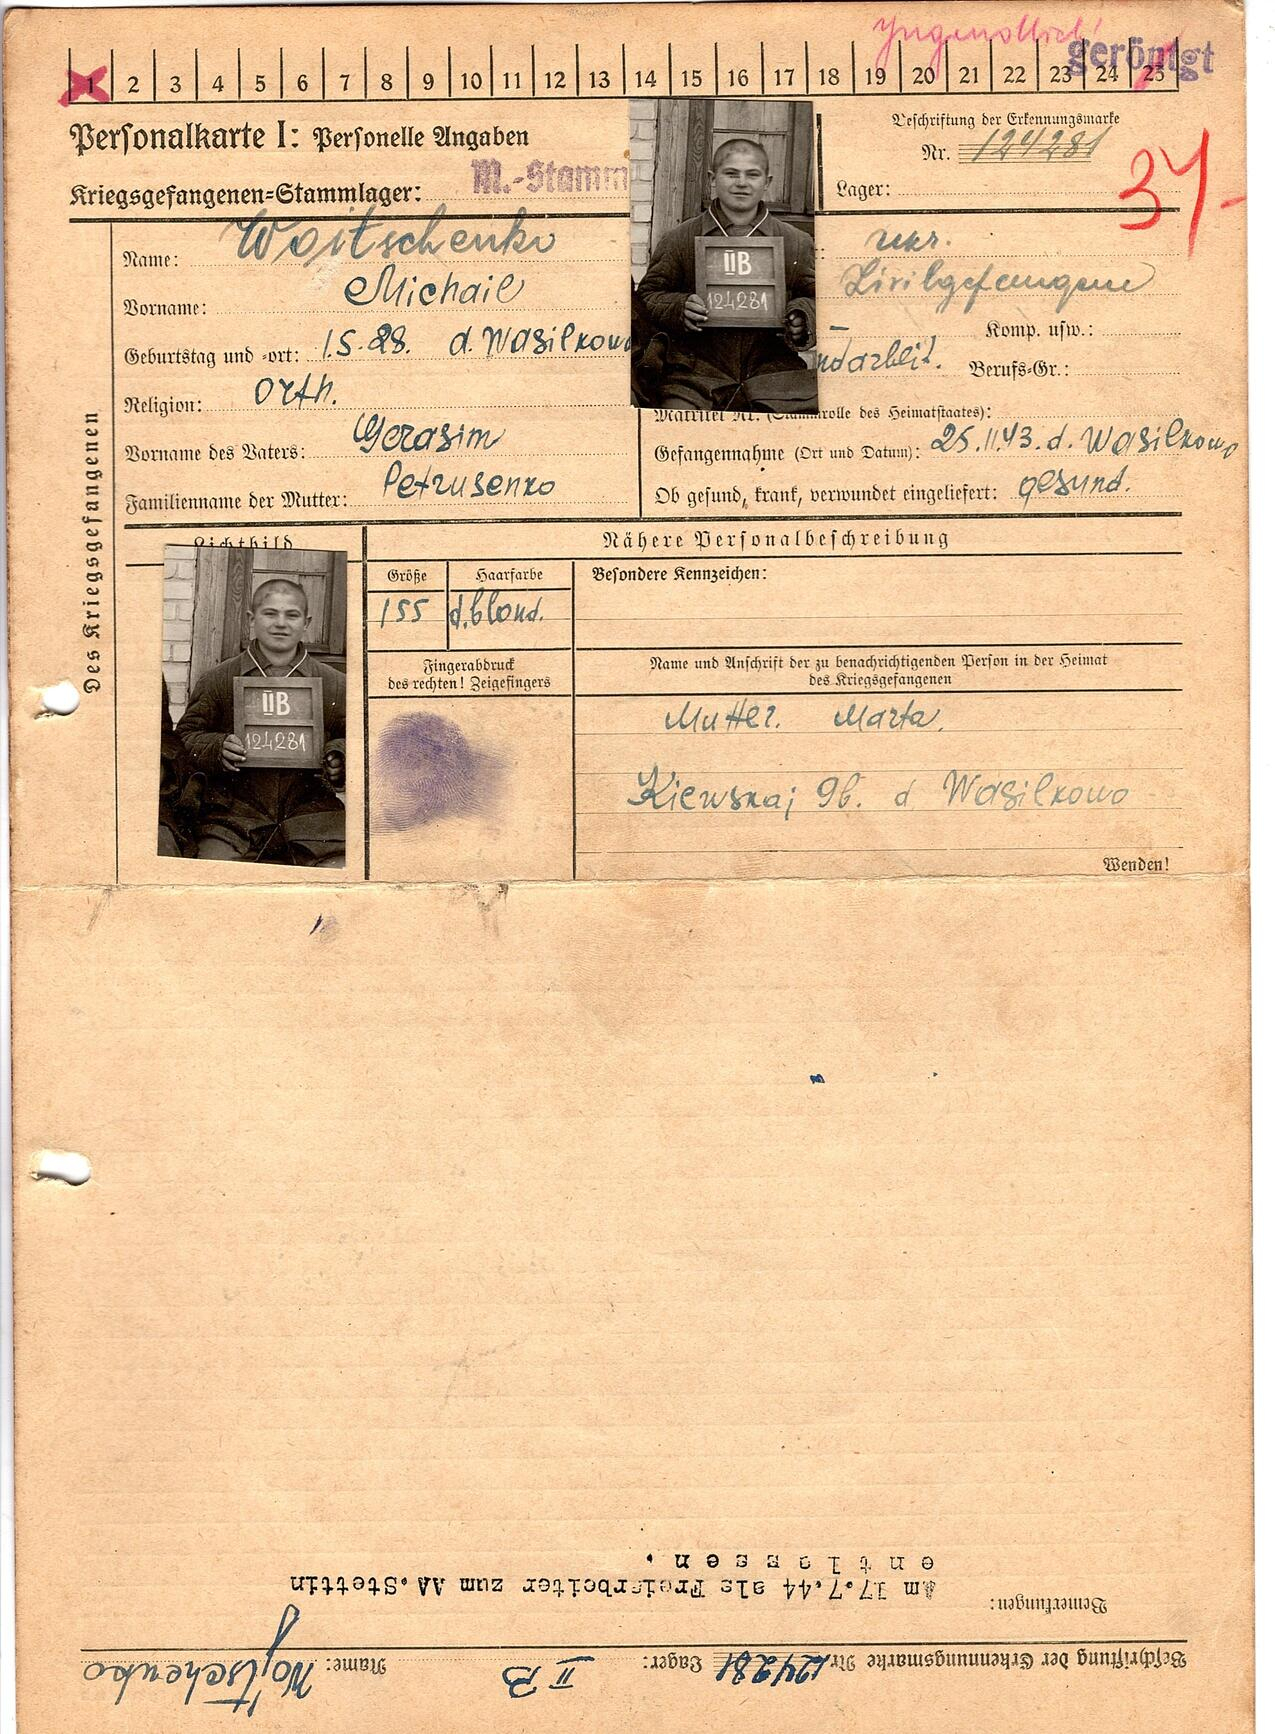 Jugendlich!
geröntgt
1 2 3 4 5 6 7 8 9 10 11 12 13 14 15 16 17 18 19 20 21 22 23 24 25
Personalkarte I: Personelle Angaben
Beschriftung der Erkennungsmarke
Nr. 124281
Kriegsgefangenen-Stammlager: M.-Stamm
Lager:
37-
Des Kriegsgefangenen
Name: Woitschenko
Vorname: Michail
Geburtstag und -ort: 1.5.28. d. Wasilkowo
Religion: Orth.
Vorname des Vaters: Gerasim
Familienname der Mutter: Petrusenko
ukr.
Zivilgefangene
– Komp. usw.:
ndarbeit. Berufs-Gr.:
Matrikel Nr. (Stammrolle des Heimatstaates):
Gefangennahme (Ort und Datum): 25.11.43. d. Wasilkowo
Ob gesund, krank, verwundet eingeliefert: gesund.
II B
124281
Lichtbild
Nähere Personalbeschreibung
Größe Haarfarbe Besondere Kennzeichen:
155 d.blond.
Fingerabdruck
des rechten! Zeigefingers
Name und Anschrift der zu benachrichtigenden Person in der Heimat
des Kriegsgefangenen
Mutter. Marta.
Kiewskaj 96. d Wasilkowo
Wenden!
II B
124281
Beschriftung der Erkennungsmarke Nr. 124281 Lager: II B Name: Wojtschenko
Bemerkungen:
Am 17.7.44 als Freiarbeiter zum AA.Stettin
entlassen.